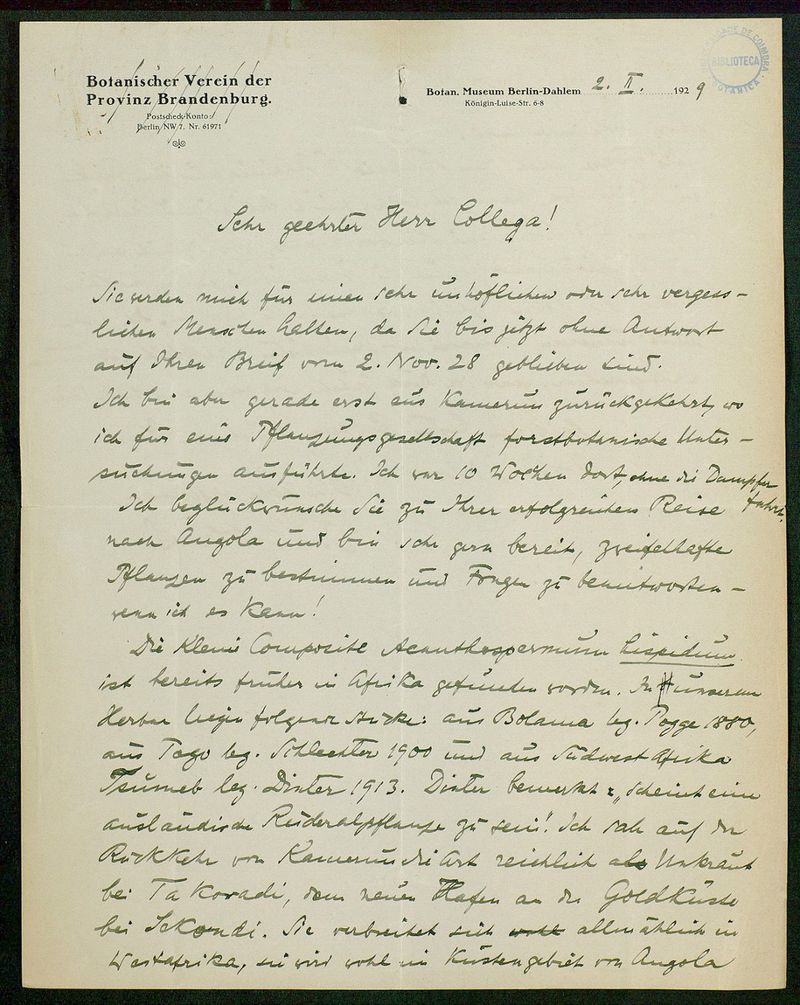 Botanischer Verein der
Provinz Brandenburg.
Postscheck-Konto:
Berlin NW 7, Nr. 61971
Botan. Museum Berlin-Dahlem 2. II. 1929
Königin-Luise-Str. 6-8
BIBLIOTECA
BOTANICA
Sehr geehrter Herr Collega!
Sie werden mich für einen sehr unhöflichen oder sehr vergess-
lichen Menschen halten, da Sie bis jetzt ohne Antwort
auf Ihren Breif vom 2. Nov. 28 geblieben sind.
Ich bin aber gerade erst aus Kamerun zurückgekehrt, wo
ich für eine Pflanzungsgesellschaft forstbotanische Unter-
suchungen ausführte. Ich war 10 Wochen dort, ohne die Dampfer
fahrt.
Ich beglückwünsche Sie zu Ihrer erfolgreichen Reise
nach Angola und bin sehr gern bereit, zweifelhafte
Pflanzen zu bestimmen und Fragen zu beantworten -
wenn ich es kann!
Die kleine Composite Acanthospermum hispidum
ist bereits früher in Afrika gefunden worden. In unserem
Herbar liegen folgende Stücke: aus Bolama leg. Pogge 1880,
aus Togo leg. Schlechter 1900 und aus Südwest Afrika
Tsumeb leg. Dinter 1913. Dinter bemerkt: „scheint eine
ausländische Ruderalpflanze zu sein!. Ich sah auf der
Rückkehr von Kamerun die Art reichlich als Unkraut
bei Takoradi, dem neuen Hafen an der Goldküste
bei Sekondi. Sie verbreitet sich allmählich in
Westafrika, sie wird wohl im Küstengebiet von Angola